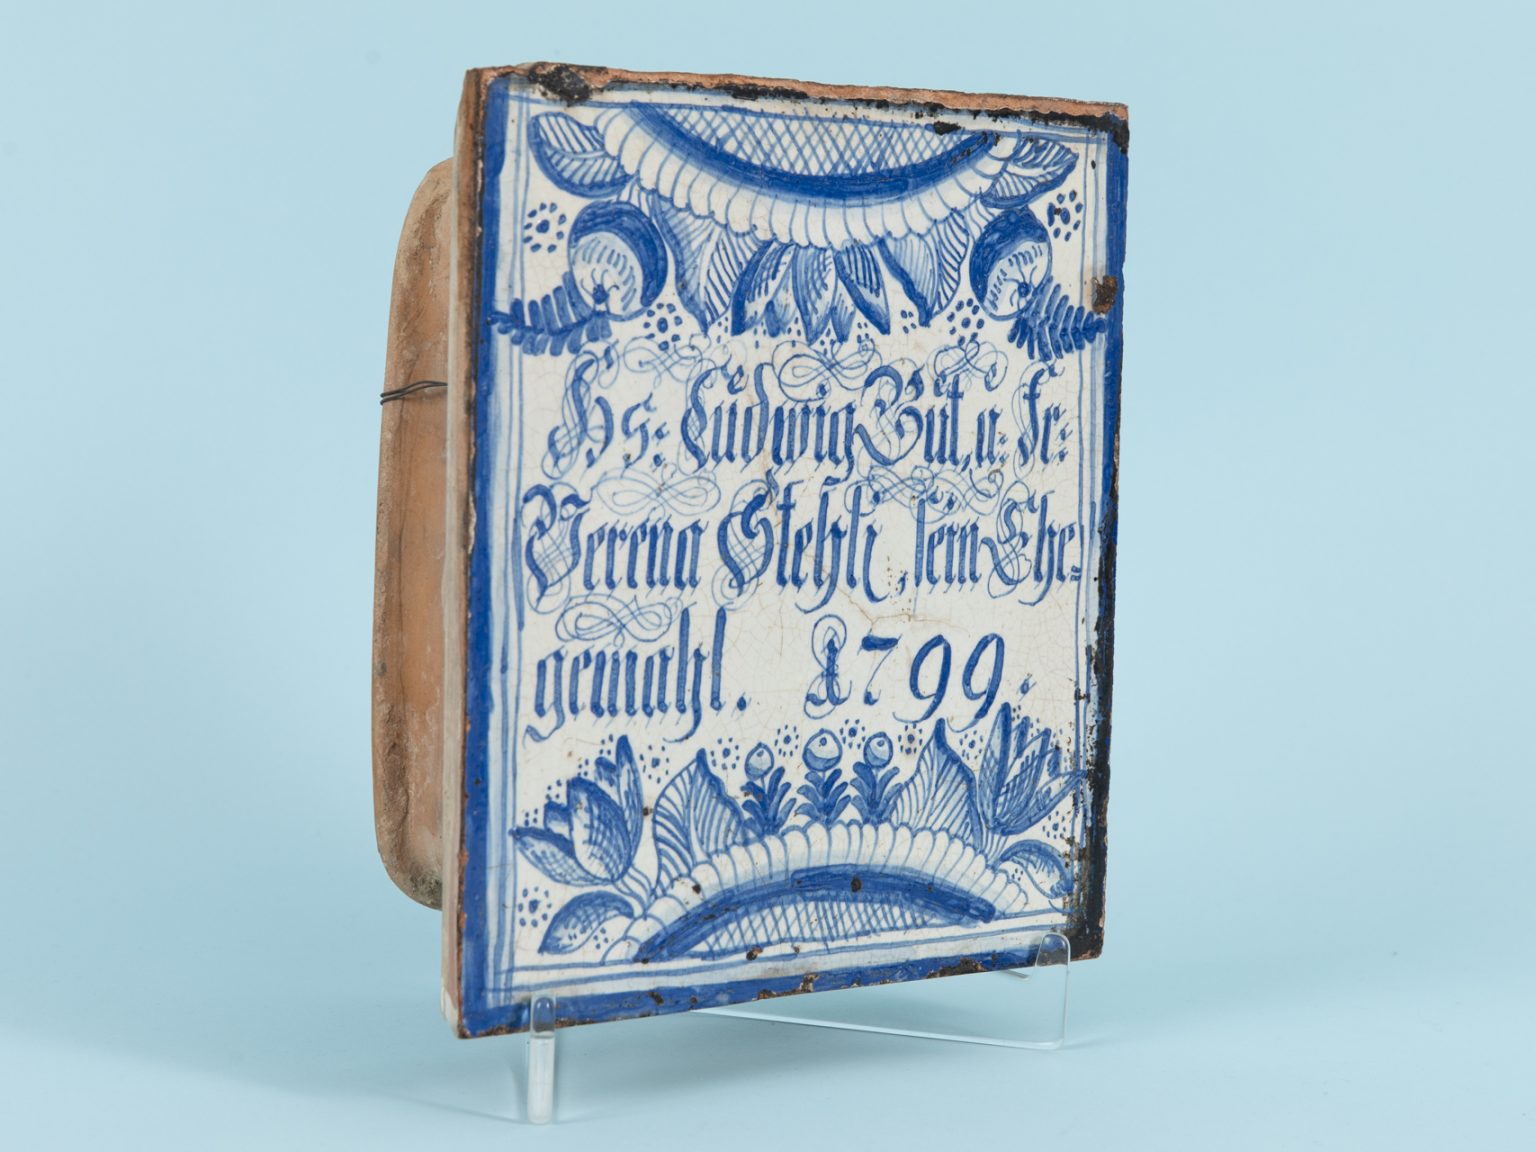 Hs: Ludwig Büt, u: Fr:
Verena Stehli, sein Ehe=
gemahl. 1799.